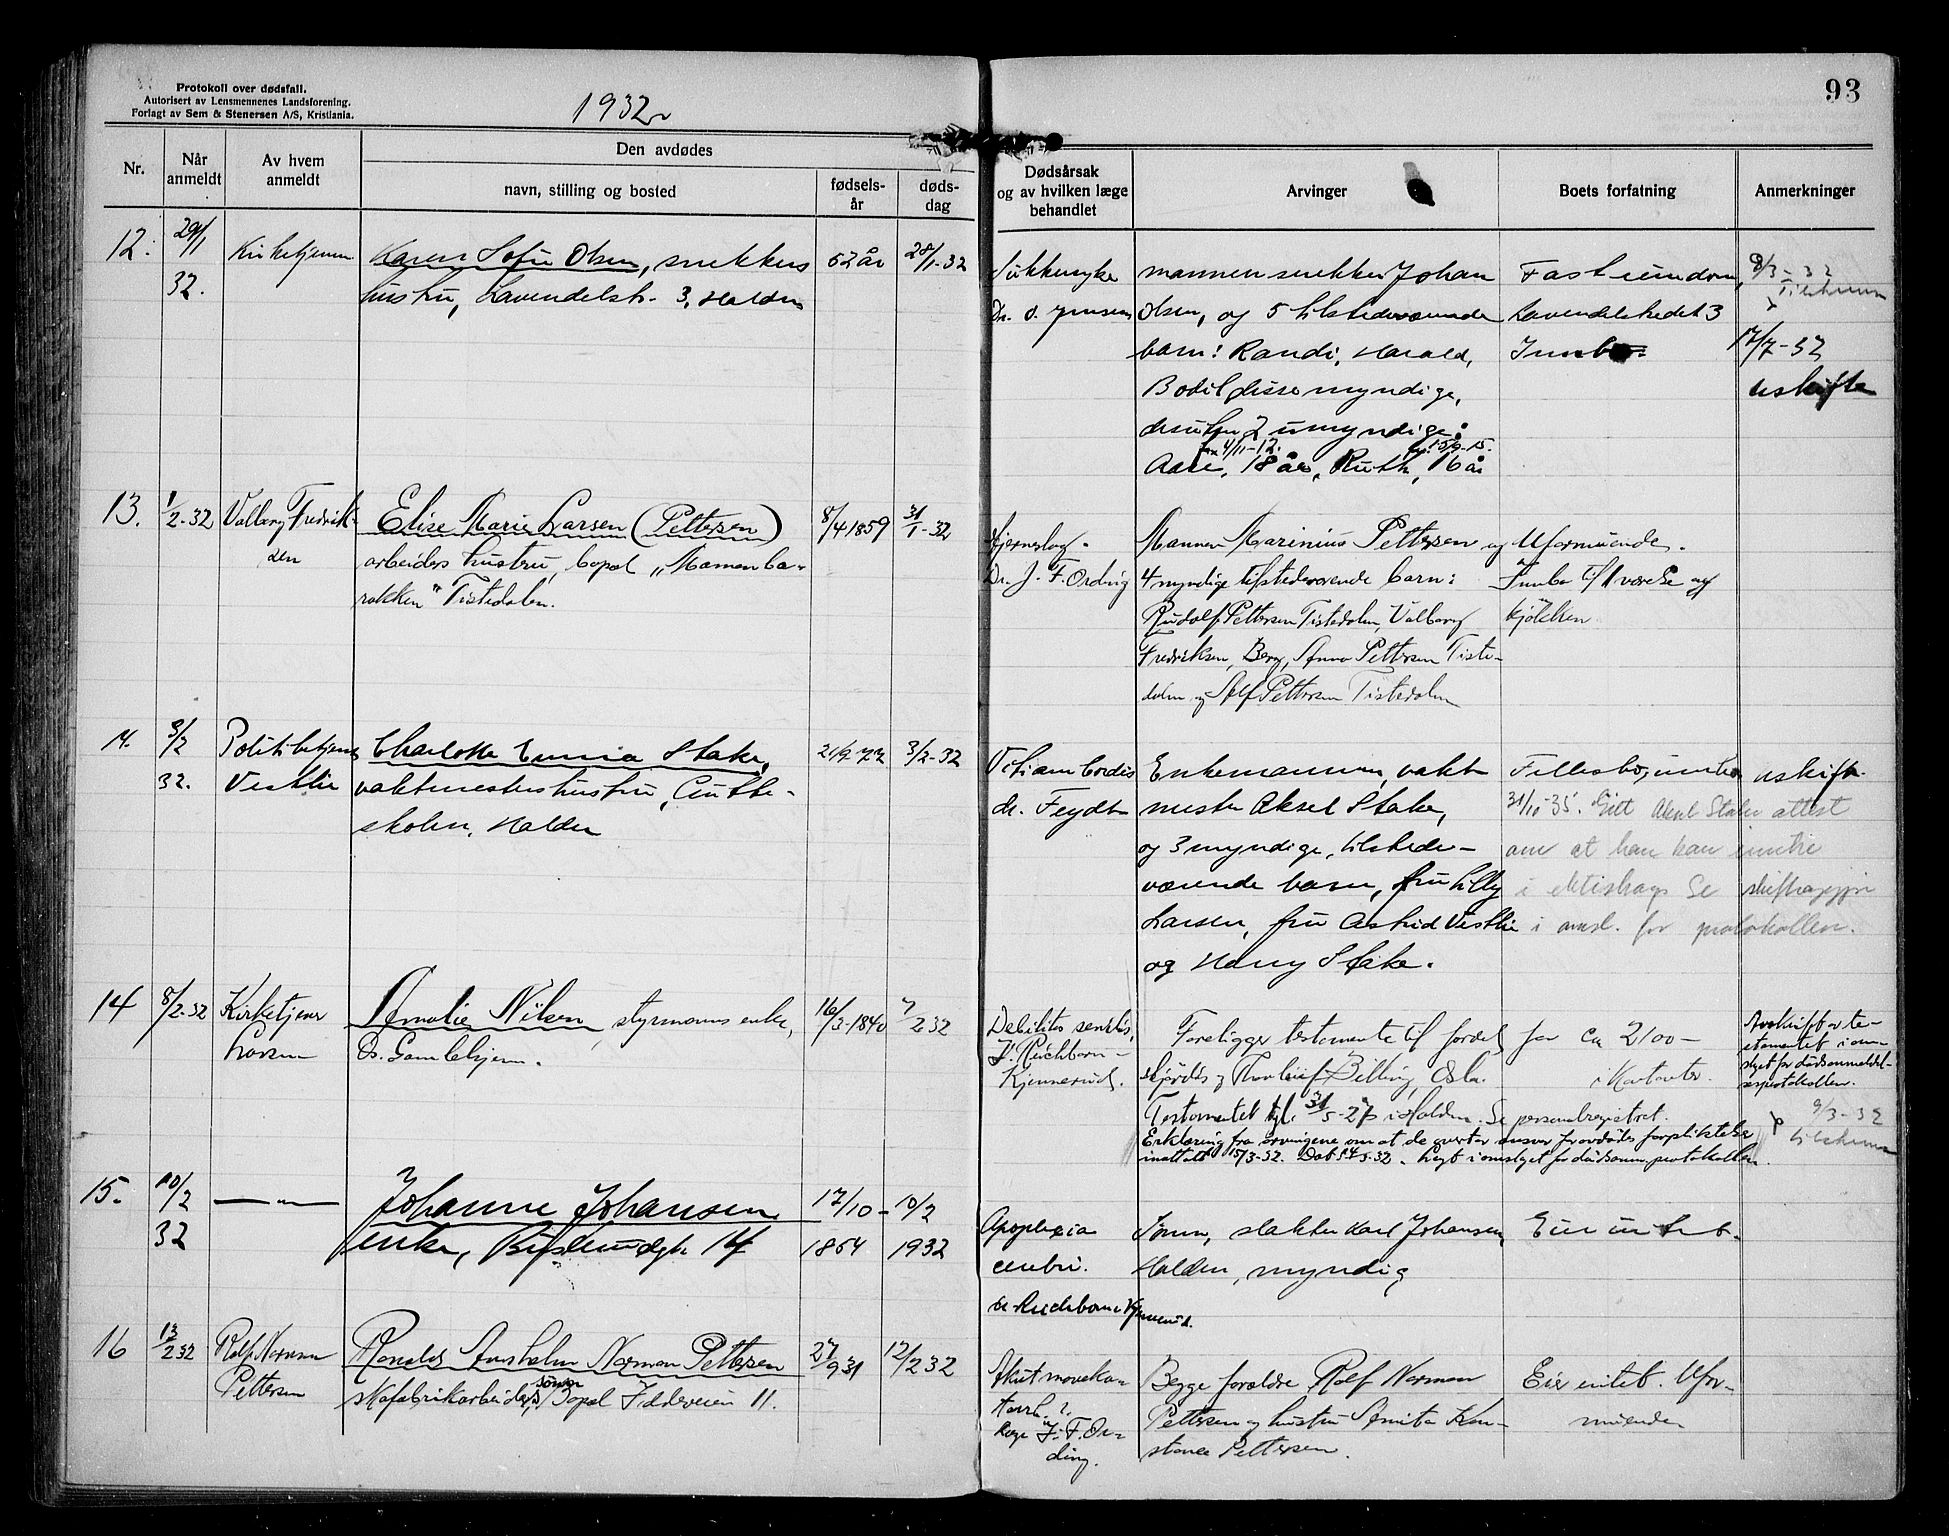 Protokoll over dødsfall.
Autorisert av Lensmennenes Landsforening.
Forlagt av Sem & Stenersen A/S, Kristiania.
1932
93
Nr.
Når anmeldt
Av hvem anmeldt
Den avdødes
navn, stilling og bosted
fødsels-år
døds-dag
Dødsårsak og av hvilken læge behandlet
Arvinger
Boets forfatning
Anmerkninger
12.
29/1
32.
Kirketjeneren
Karen Sofie Olsen, snekkers
hustru, Lavendelstr. 3, Halden
62 år
28/1-32
Sukkersyke
Dr. O. Jensen
mannen snekker Johan
Olsen, og 5 tilstedeværende
barn: Randi, Harald,
Bodil disse myndige,
desuten 2 umyndige:
4/11-12.
Aase, 18 år, Ruth, 16 år
Fast eiendom,
Lavendelstredet 3
Innbo
9/3-32
Tilskreven
17/7-32
uskifte
13.
1/2-32
Valborg Fredrik-
sen
Elise Marie Larsen (Pettersen)
arbeiders hustru, bopæl "Mamenba-
rakken" Tistedalen.
8/4 1859
31/1-32
Hjerneslag.
Dr. J. F. Ording
Mannen Marinius Pettersen og
4 myndige tilstedeværende barn:
Rudolf Pettersen Tistedalen, Valborg
Fredriksen, Berg, Anna Pettersen Tiste-
dalen og Alf Pettersen Tistedalen
Uformuende.
Innbo til 1 værelse og
kjøkken
14.
3/2
32.
Politibetjent
Vestlie
Charlotte Emma Stake,
vaktmesterhustru, Gutte-
skolen, Halden
3/2-32
Vitium Cordis
dr. Feydt
Enkemannen, vakt-
mester Aksel Stake,
og 3 myndige, tilstede-
værende barn, fru Lilly
Larsen, fru Astrid Vestlie
og Harry Stake.
Fellesbo, innbo
31/10-35. Gitt Aksel Stake attest
om at han kan inntre
i ekteskap. Se skifteoppgjør
i omsl. for protokollen.
uskifte.
14
8/2-32
Kirketjener
Larsen
Amalie Nilsen, styrmanns enke,
Os. Gamlehjem.
16/3-1840
7/2 32
Debilitas senilis,
J. Ruchborn-
Kjennerud.
Foreligger testamente til fordel for ca 2100-
Hjørdis og Thorleif Billing, Oslo. i Kontanter.
Testamentet tgl. 31/5-27 i Halden. Se personalregistret.
Erklæring fra arvingene om at de overtar ansvar for avdødes forpliktelse
inntatt 15/3-32. Dat 14/3-32. Lagt i omslaget for dødsanm.protokollen.
Avskrift av te-
stamentet i om-
slaget for dødsanmeldel-
sesprotokollen.
9/3-32
tilskreven
15.
10/2
32
— " —
Johanne Johansen
enke, 14
17/10-
1854
10/2
1932
Apoplexia
cerebri.
dr Ruchborn Kjennerud.
Sønn, slakter Karl Johansen,
Halden, myndig
Eier intet.
16
13/2 32
Rolf Norman
Pettersen
Ronald Norman Pettersen
skofabrikarbeiders sønn, Bopæl Iddeveien 11.
27/9 31
12/2 32
Akut maveka-
tarrh.?
læge J. F. Or-
ding.
Begge foreldre Rolf Norman
Pettersen og hustru Anita Kon-
stance Pettersen.
Eier intet. Ufor-
muende